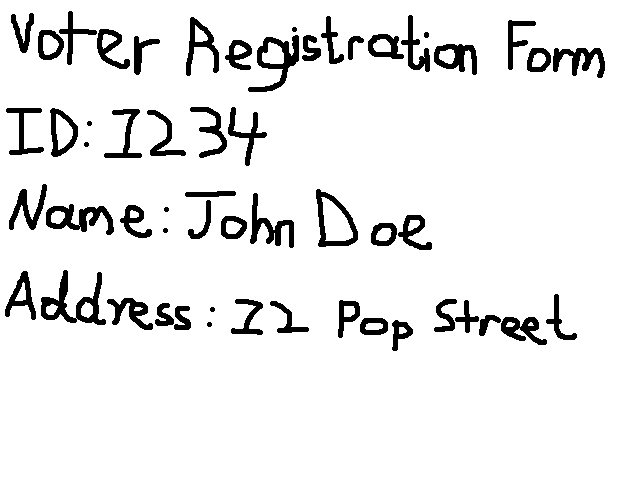 Voter Registration Form
ID: 1234
Name: John Doe
Address: 12 Pop Street